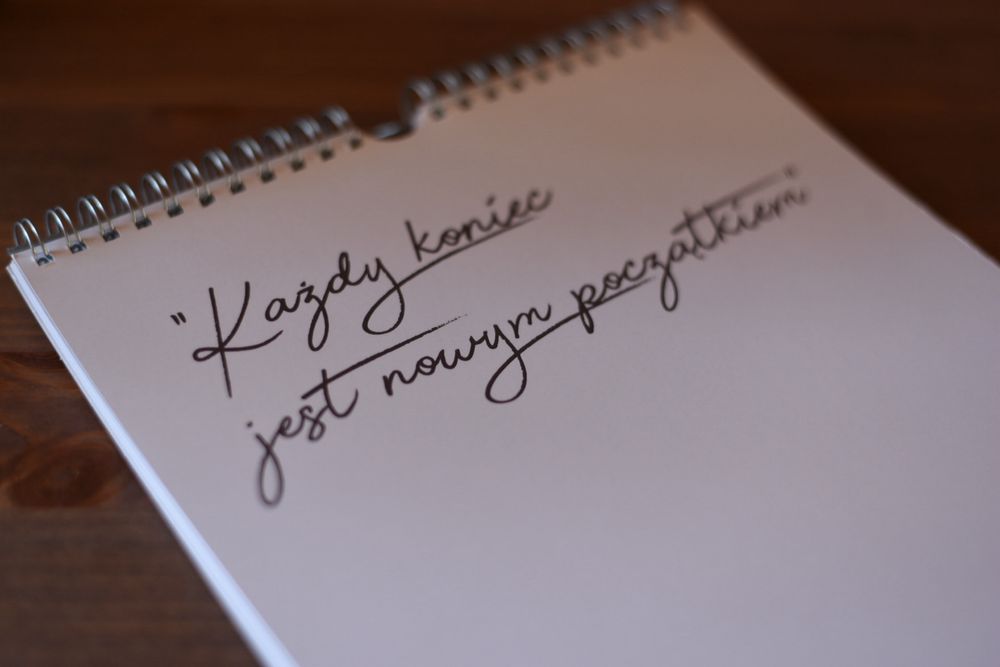 "Każdy koniec
jest nowym początkiem"